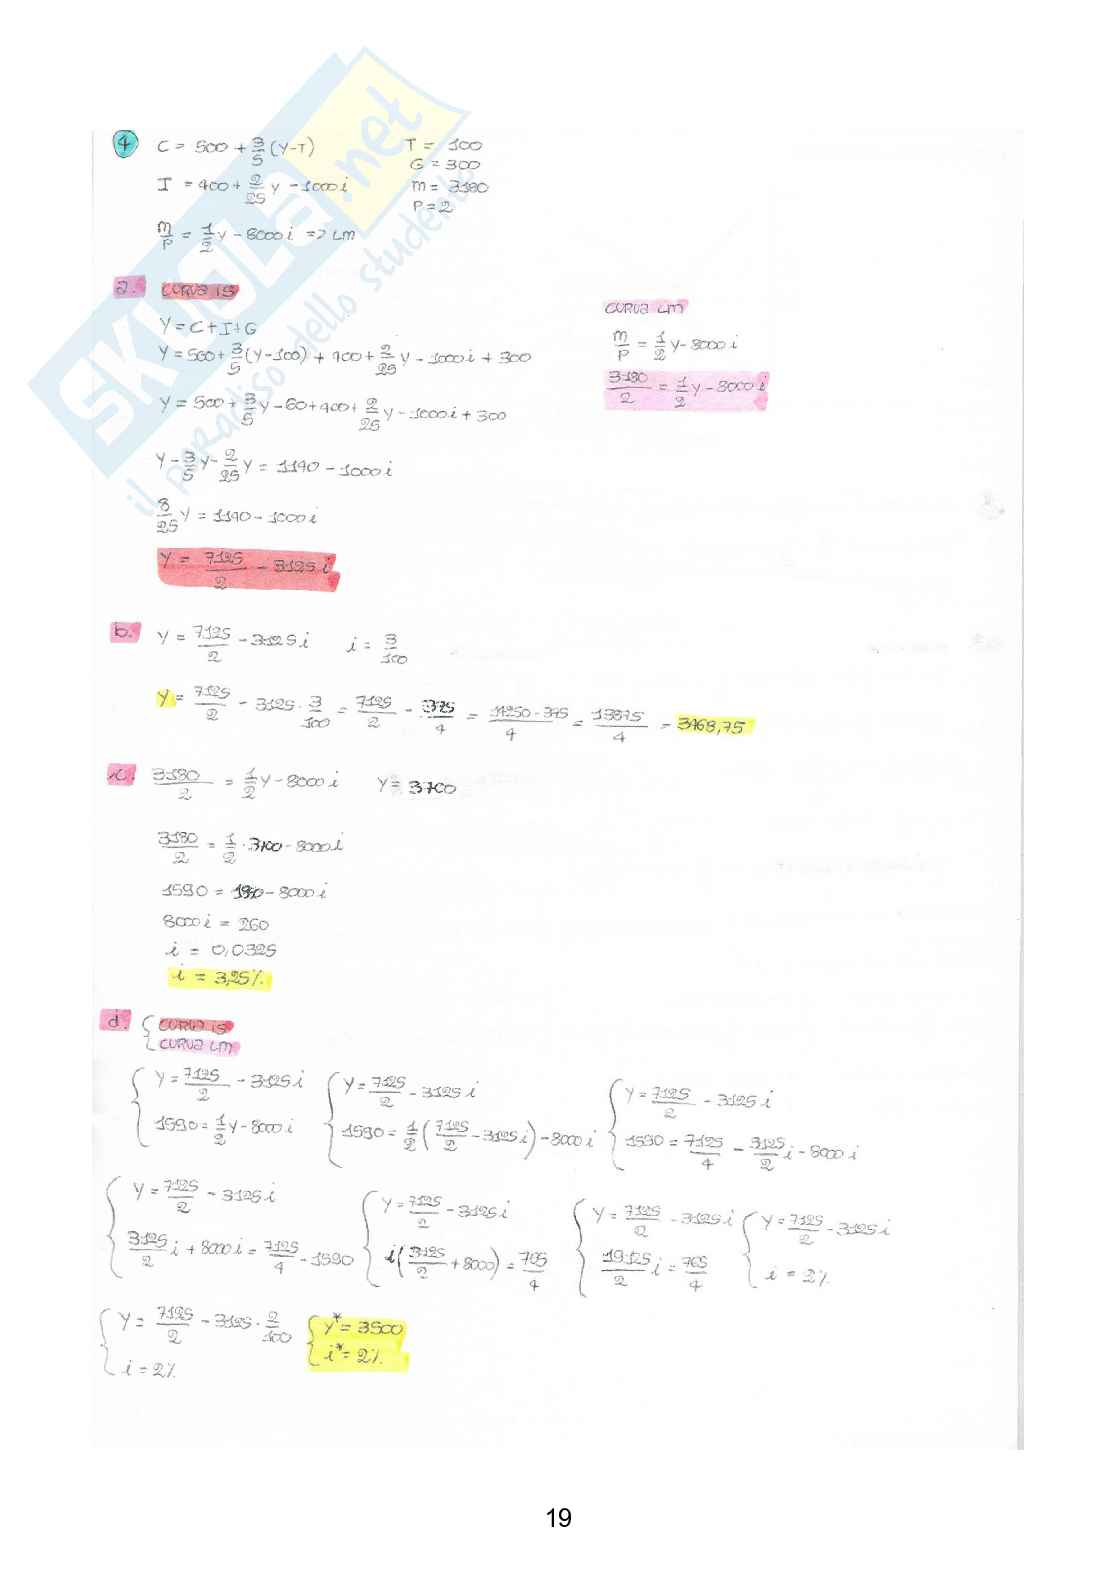 SKUOLA.net
il paradiso dello studente
4 C = 500 + 3/5 (Y-T) T = 100
G = 300
I = 400 + 2/25 Y - 1000 i m = 3180
P = 2
m/P = 1/2 Y - 8000 i => LM
a. CURVA IS
Y = C + I + G
Y = 500 + 3/5 (Y-100) + 400 + 2/25 Y - 1000 i + 300
Y = 500 + 3/5 Y - 60 + 400 + 2/25 Y - 1000 i + 300
Y - 3/5 Y - 2/25 Y = 1140 - 1000 i
8/25 Y = 1140 - 1000 i
Y = 7125/2 - 3125 i
CURVA LM
m/P = 1/2 Y - 8000 i
3180/2 = 1/2 Y - 8000 i
b. Y = 7125/2 - 3125 i i = 3/100
Y = 7125/2 - 3125 · 3/100 = 7125/2 - 375/4 = 14250 - 375/4 = 13875/4 = 3468,75
c. 3180/2 = 1/2 Y - 8000 i Y = 3700
3180/2 = 1/2 · 3700 - 8000 i
1590 = 1850 - 8000 i
8000 i = 260
i = 0,0325
i = 3,25%
d. { CURVA IS
{ CURVA LM
{ Y = 7125/2 - 3125 i { Y = 7125/2 - 3125 i { Y = 7125/2 - 3125 i
1590 = 1/2 Y - 8000 i 1590 = 1/2 (7125/2 - 3125 i) - 8000 i 1590 = 7125/4 - 3125/2 i - 8000 i
{ Y = 7125/2 - 3125 i { Y = 7125/2 - 3125 i { Y = 7125/2 - 3125 i { Y = 7125/2 - 3125 i
3125/2 i + 8000 i = 7125/4 - 1590 i (3125/2 + 8000) = 765/4 19125/2 i = 765/4 i = 2%
{ Y = 7125/2 - 3125 · 2/100 { Y* = 3500
i = 2% i* = 2%
19